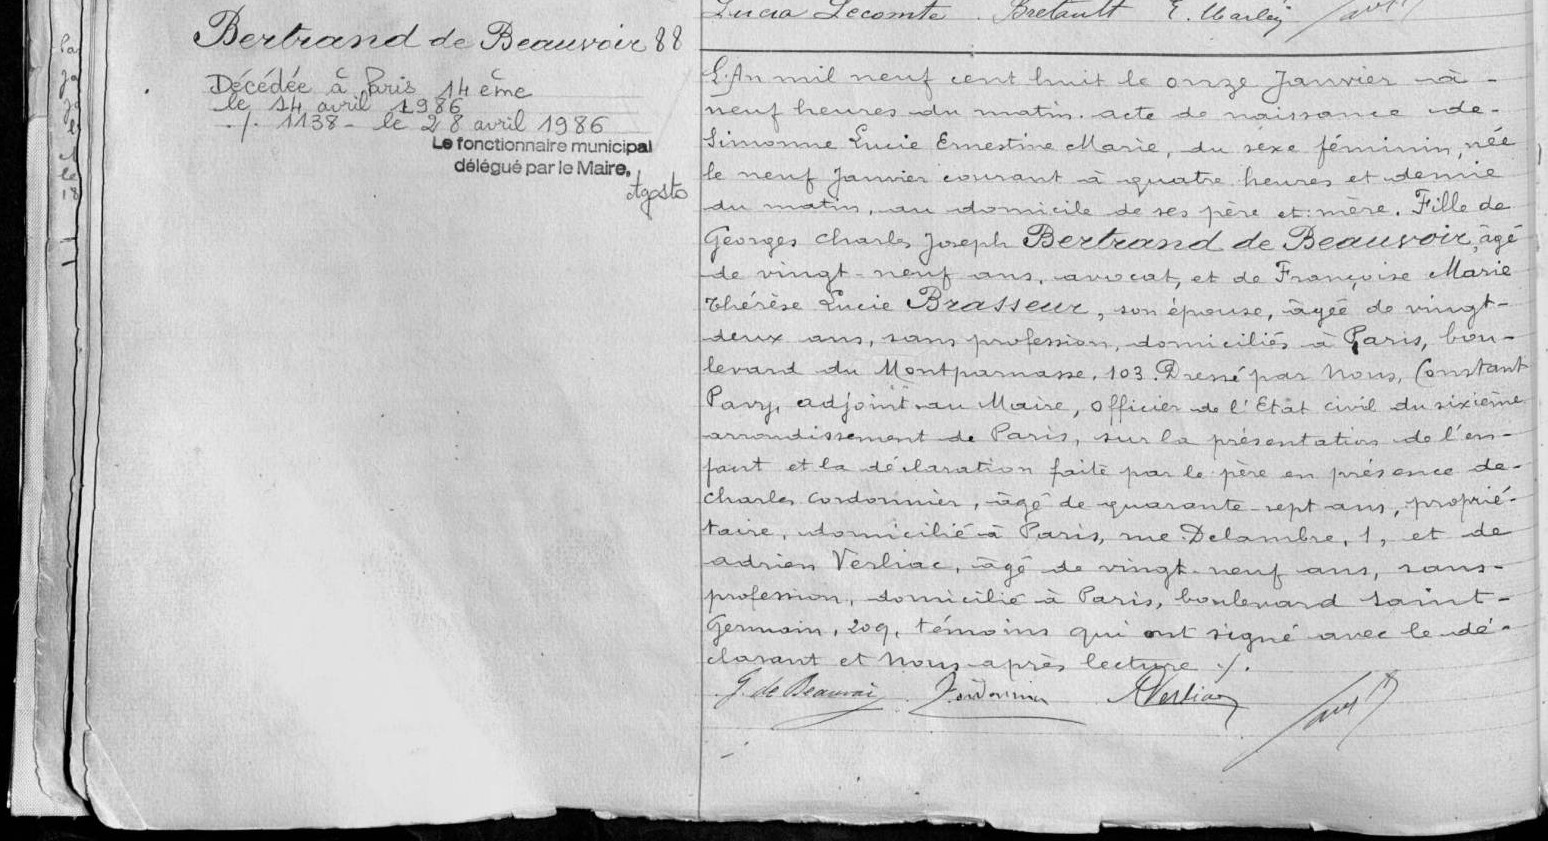 Lucia Lecomte Bretault E. Marley
Bertrand de Beauvoir 88
Décédée à Paris 14ème
le 14 avril 1986
./. 1138 - le 28 avril 1986
Le fonctionnaire municipal
délégué par le Maire,
Agosto
L'An mil neuf cent huit le onze Janvier à
neuf heures du matin. acte de naissance de
Simonne Lucie Ernestine Marie, du sexe féminin, née
le neuf Janvier courant à quatre heures et demie
du matin, au domicile de ses père et mère. Fille de
Georges Charles Joseph Bertrand de Beauvoir, âgé
de vingt-neuf ans, avocat, et de Françoise Marie
Thérèse Lucie Brasseur, son épouse, âgée de vingt-
deux ans, sans profession, domiciliés à Paris, bou-
levard du Montparnasse, 103. Dressé par Nous, Constant
Pavy, adjoint au Maire, officier de l'Etat civil du sixième
arrondissement de Paris, sur la présentation de l'en-
fant et la déclaration faite par le père en présence de
Charles Cordonnier, âgé de quarante-sept ans, proprié-
taire, domicilié à Paris, rue Delambre, 1, et de
adrien Verliac, âgé de vingt-neuf ans, sans
profession, domicilié à Paris, boulevard Saint-
Germain, 209, témoins qui ont signé avec le dé-
clarant et Nous après lecture ./.
G. de Beauvoir Cordonnier AVerliac Pavy